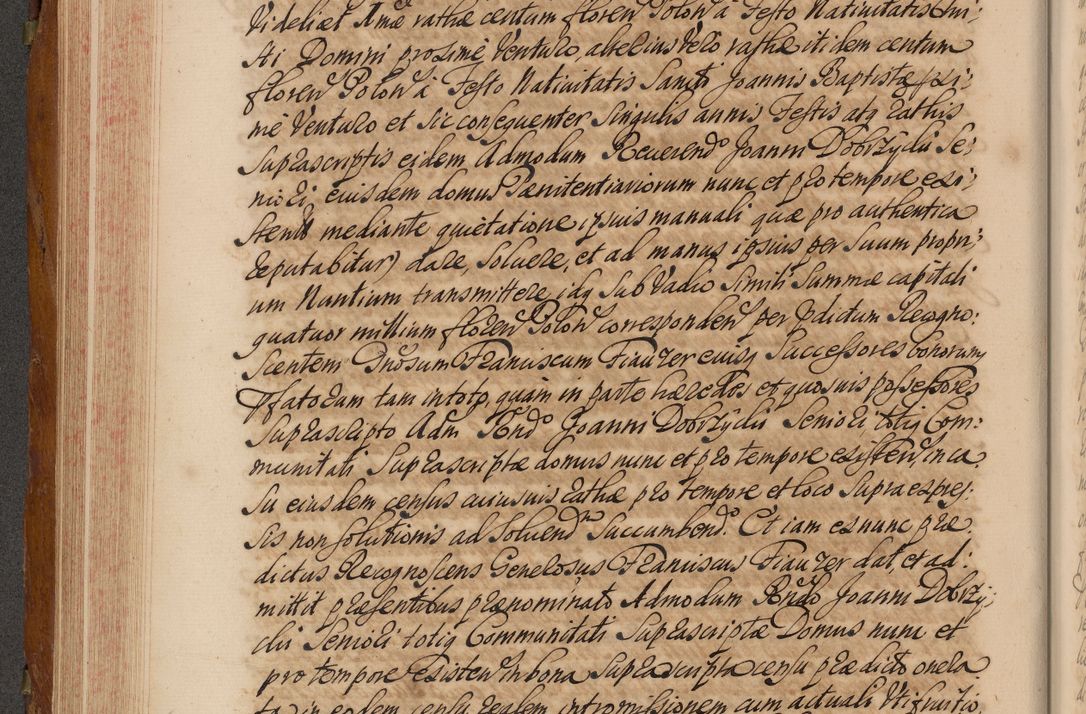 Videlicet Unā rathā centum floren Polon à Festo Nativitatis Chri=
sti Domini proximè Venturo, alterius vero rathæ itidem centum
floren Polon à Festo Nativitatis Sancti Joannis Baptistæ proxi=
mè Venturo et sic consequenter singulis annis Festis atq rathis
suprascriptis eidem Admodum Reverendo Joanni Dobrzycki Se=
niori, eiusdem domus Pænitentiariorum nunc et pro tempore exi=
stenti mediante quietatione ipsius manuali quæ pro authentica
reputabitur) dare, solvere, et ad manus ipsius per suum propri=
um Nuntium transmittere, idq sub Vadio simili summæ capitali
quatuor millium floren Polon corresponden per prdictum Recogno=
scentem Gnosum Franciscum Fiauzer eiusq Successores bonorum
Pfatorum tam in toto, quam in parte hæredes et quosuis possessores
suprascripto Adm Rndo Joanni Dobrzycki Seniori totiq Com=
munitati suprascriptæ domus nunc et pro tempore existen, in ca
su eiusdem census cuiusuis rathæ pro tempore et loco supra expres=
sis non solutionis ad solvend succumbend. Et iam ex nunc præ
dictus Recognoscens Generosus Franciscus Fiauzer dat, et ad=
mittit præsentibus prænominato Admodum Rndo Joanni Dobrzy=
cki Seniori totiq Communitati suprascriptæ Domus nunc et
pro tempore Existen in bona suprascripta censu prædicto onera
ta in eodem censu realem intromissionem cum actuali Usufruitio